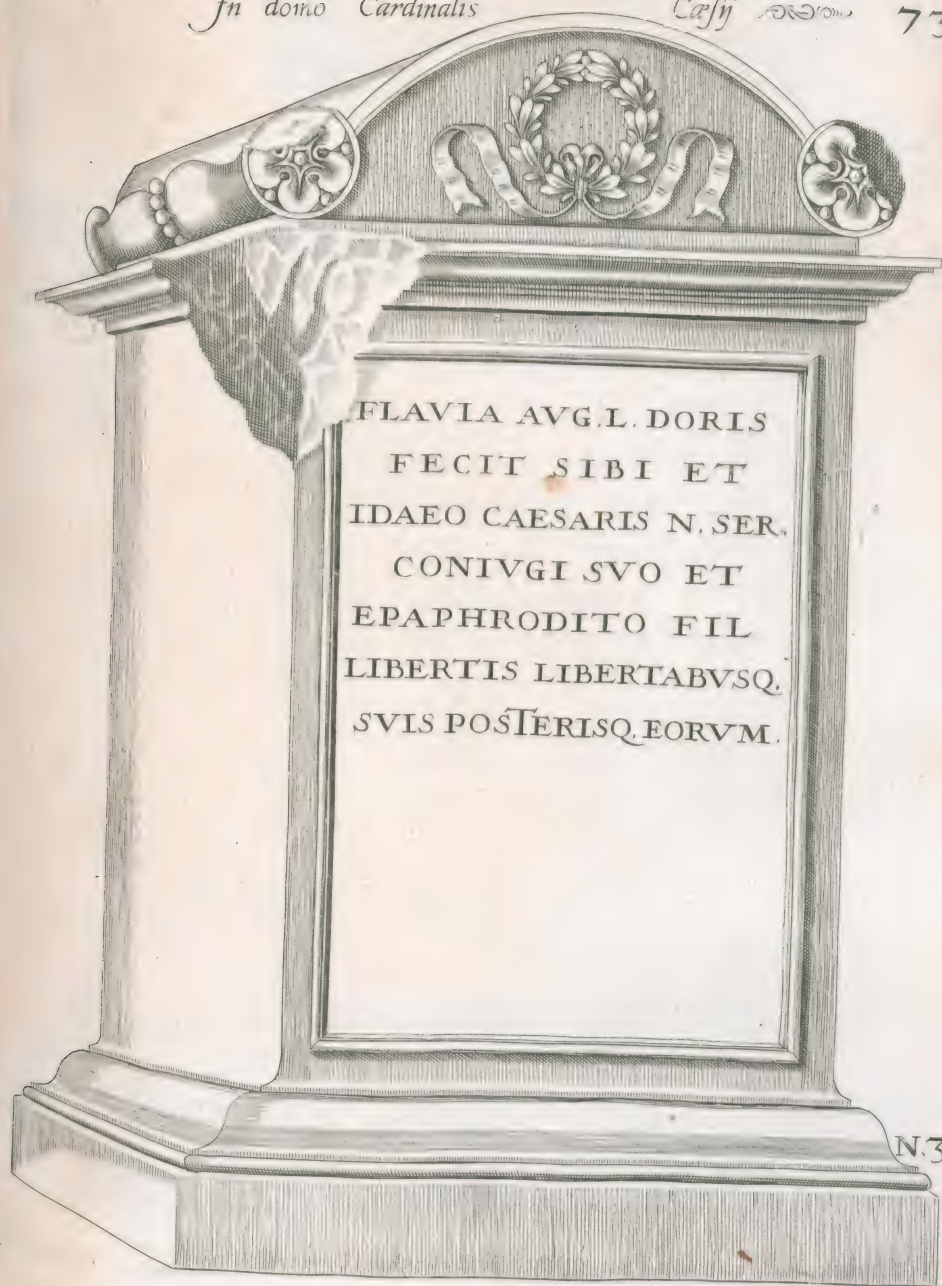 In domo Cardinalis Cæsij 73
FLAVIA AVG.L.DORIS
FECIT SIBI ET
IDAEO CAESARIS N.SER.
CONIVGI SVO ET
EPAPHRODITO FIL
LIBERTIS LIBERTABVSQ.
SVIS POSTERISQ.EORVM.
N.3